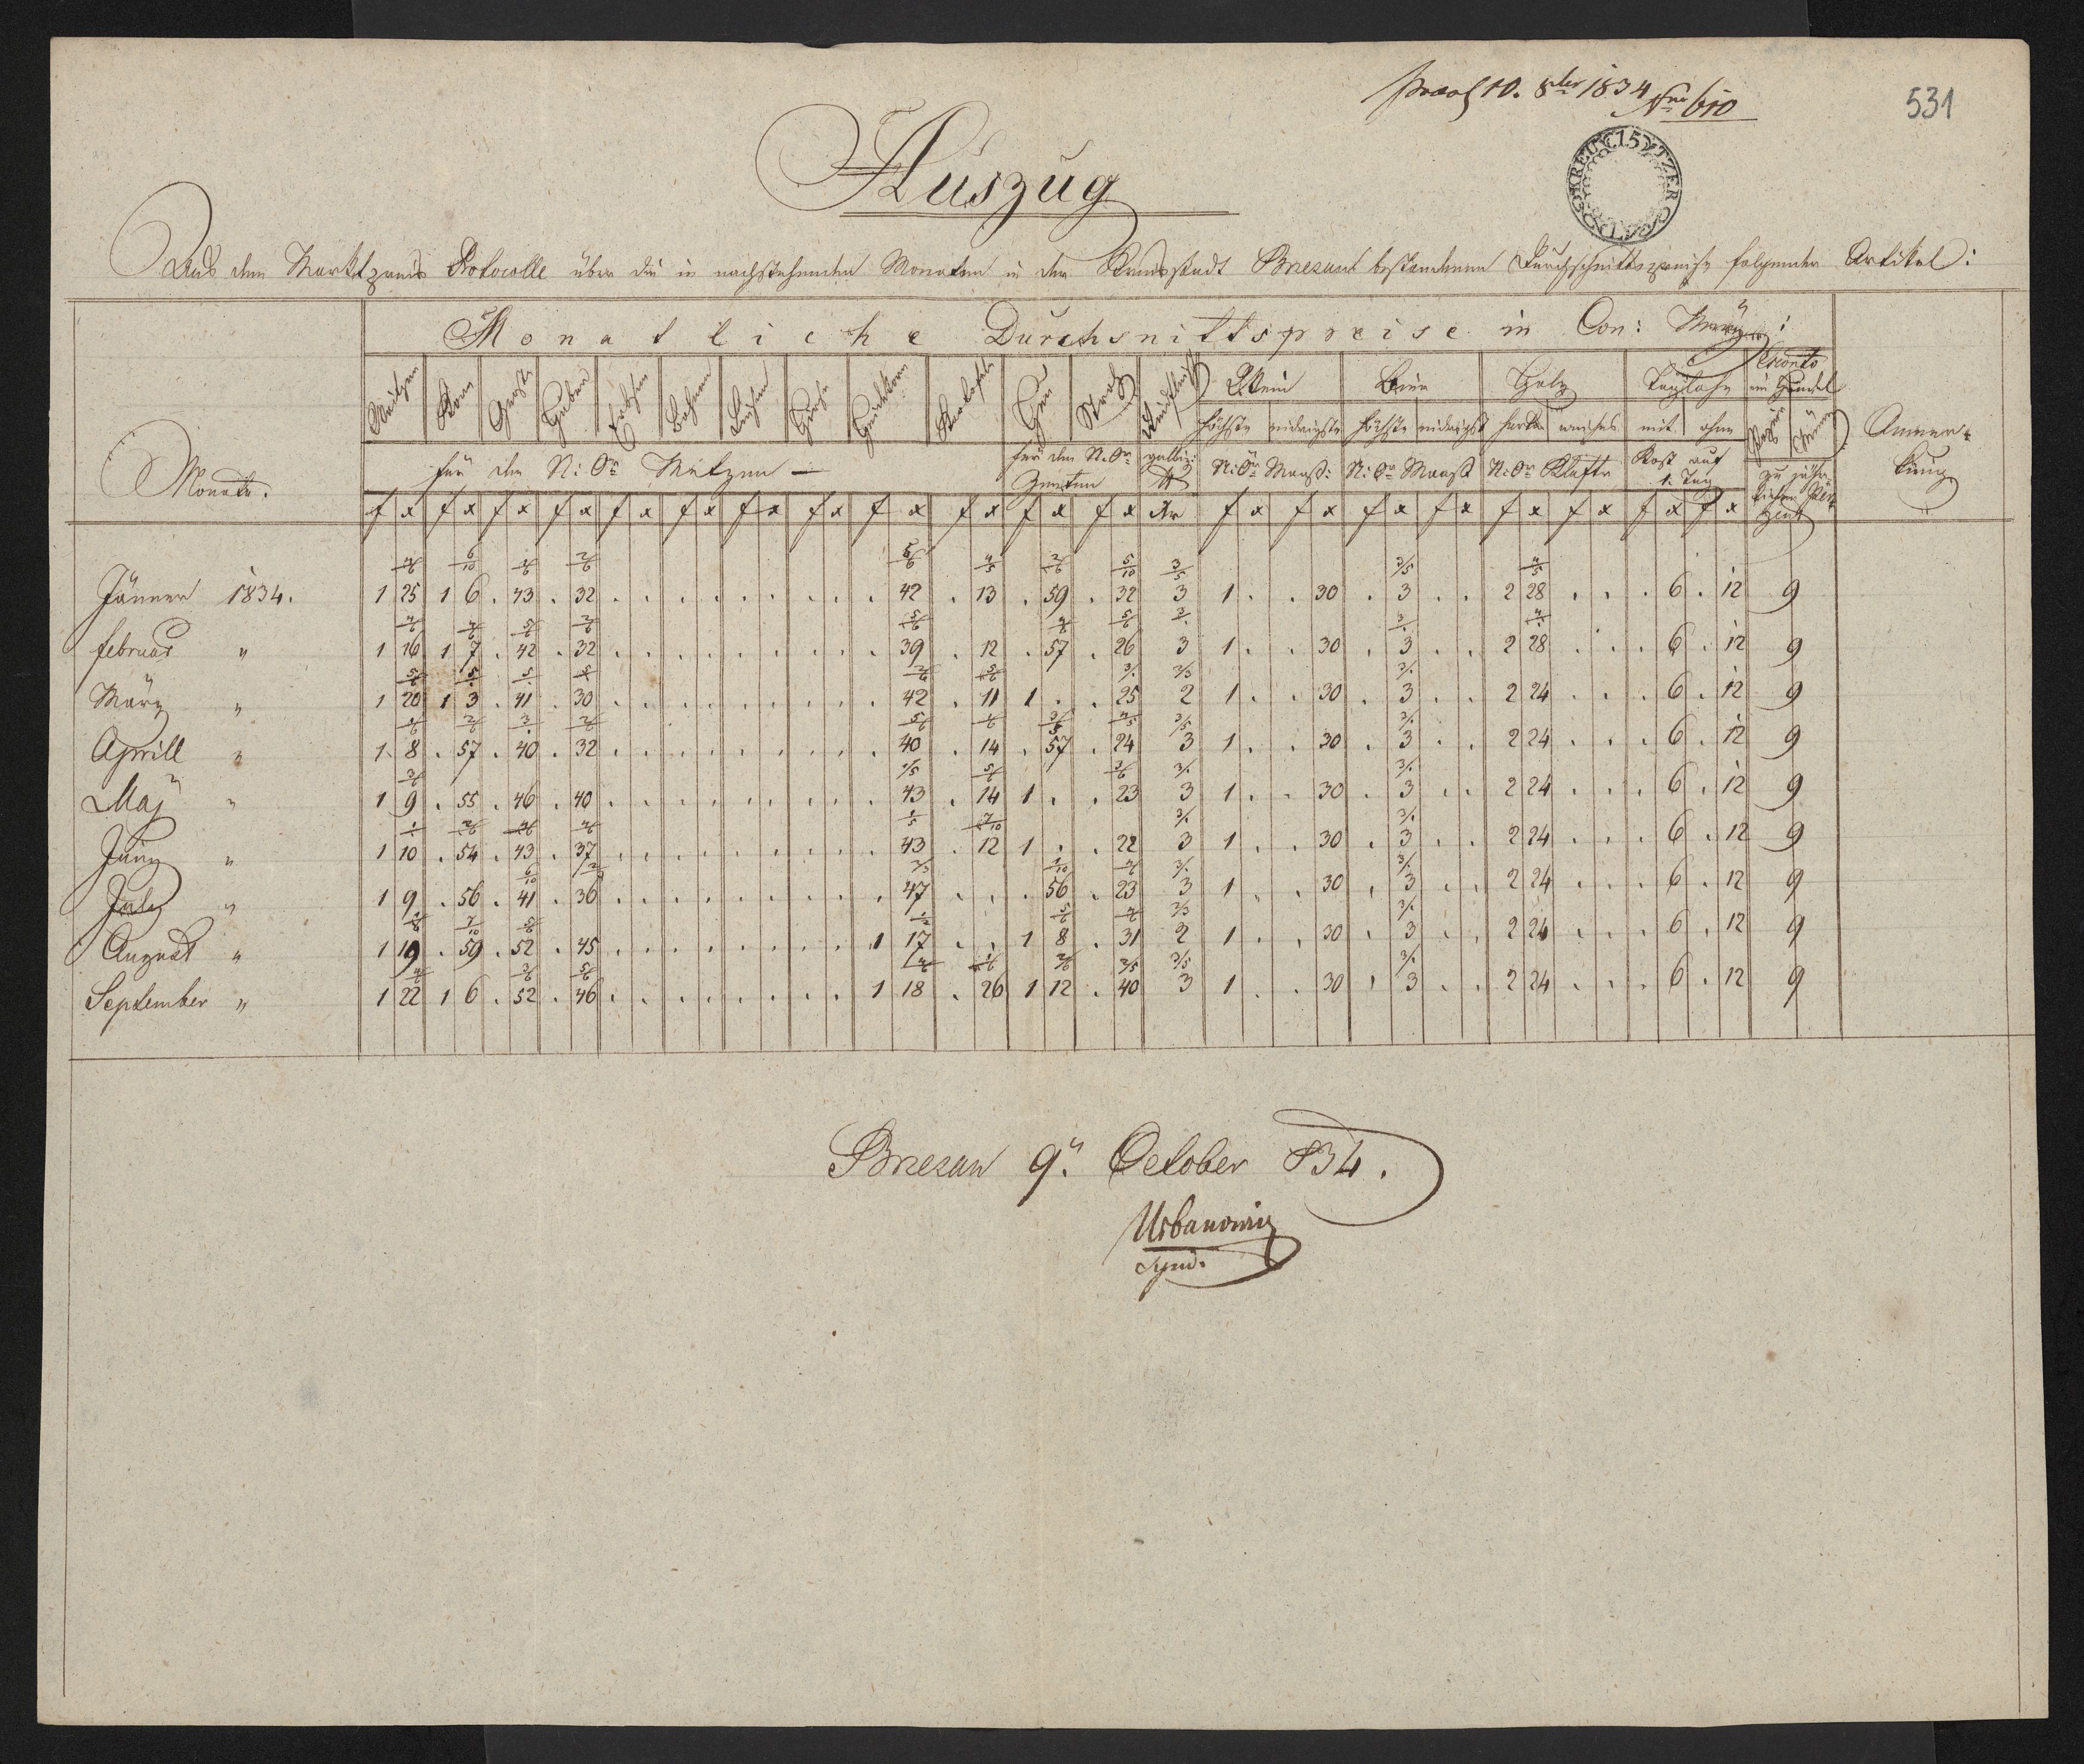 praes 10. 8ber 1834 Nro 610
531
15 KREUTZER
Auszug
Aus dem Marktpreis Protocolle über die in nachstehenden Monaten in der Kreisstadt Brzezan bestandenen Durchschnittspreise folgender Artikel:
Monatliche Durchsnittspreise in Con: Münz:
Monate. Weitzen Korn Gerste Haber Erbsen Bohnen Linsen Hirse Heidekorn Kartofel Heu Stroh Rindfleisch Wein Bier Holz Taglohn Esconto im Handel Anmerkung
höchste niedrigste höchste niedrigste hartes weiches mit ohne
für den N: Oe Metzen — für den N. Oe Zenten galliz: ℔ N: Oe Maaß: N: Oe Maaß N: Oe Klafter Kost auf 1. Tag zu jährlichen Perzent
f x f x f x f x f x f x f x f x f x f x f x f x Xr f x f x f x f x f x f x f x f x
Jänner 1834. 1 25 1 6 . 43 . 32 . . . . . . . . . 42 . 13 . 59 . 32 3 1 . . 30 . 3 . . 2 28 . . . 6 . 12 9
Februar " 1 16 1 7 . 42 . 32 . . . . . . . . . 39 . 12 . 57 . 26 3 1 . . 30 . 3 . . 2 28 . . . 6 . 12 9
März " 1 20 1 3 . 41 . 30 . . . . . . . . . 42 . 11 1 . . 25 2 1 . . 30 . 3 . . 2 24 . . . 6 . 12 9
Aprill " 1 8 . 57 . 40 . 32 . . . . . . . . . 40 . 14 . 57 . 24 3 1 . . 30 . 3 . . 2 24 . . . 6 . 12 9
Maj " 1 9 . 55 . 46 . 40 . . . . . . . . . 43 . 14 1 . . 23 3 1 . . 30 . 3 . . 2 24 . . . 6 . 12 9
Juny " 1 10 . 54 . 43 . 37 . . . . . . . . . 43 . 12 1 . . 22 3 1 . . 30 . 3 . . 2 24 . . . 6 . 12 9
July " 1 9 . 56 . 41 . 36 . . . . . . . . . 47 . . . 56 . 23 3 1 . . 30 . 3 . . 2 24 . . . 6 . 12 9
August " 1 19 . 59 . 52 . 45 . . . . . . . . 1 17 . . 1 8 . 31 2 1 . . 30 . 3 . . 2 24 . . . 6 . 12 9
September " 1 22 1 6 . 52 . 46 . . . . . . . . 1 18 . 26 1 12 . 40 3 1 . . 30 . 3 . . 2 24 . . . 6 . 12 9
Brzezan 9n October 834.
Urbanowicz
Synd.